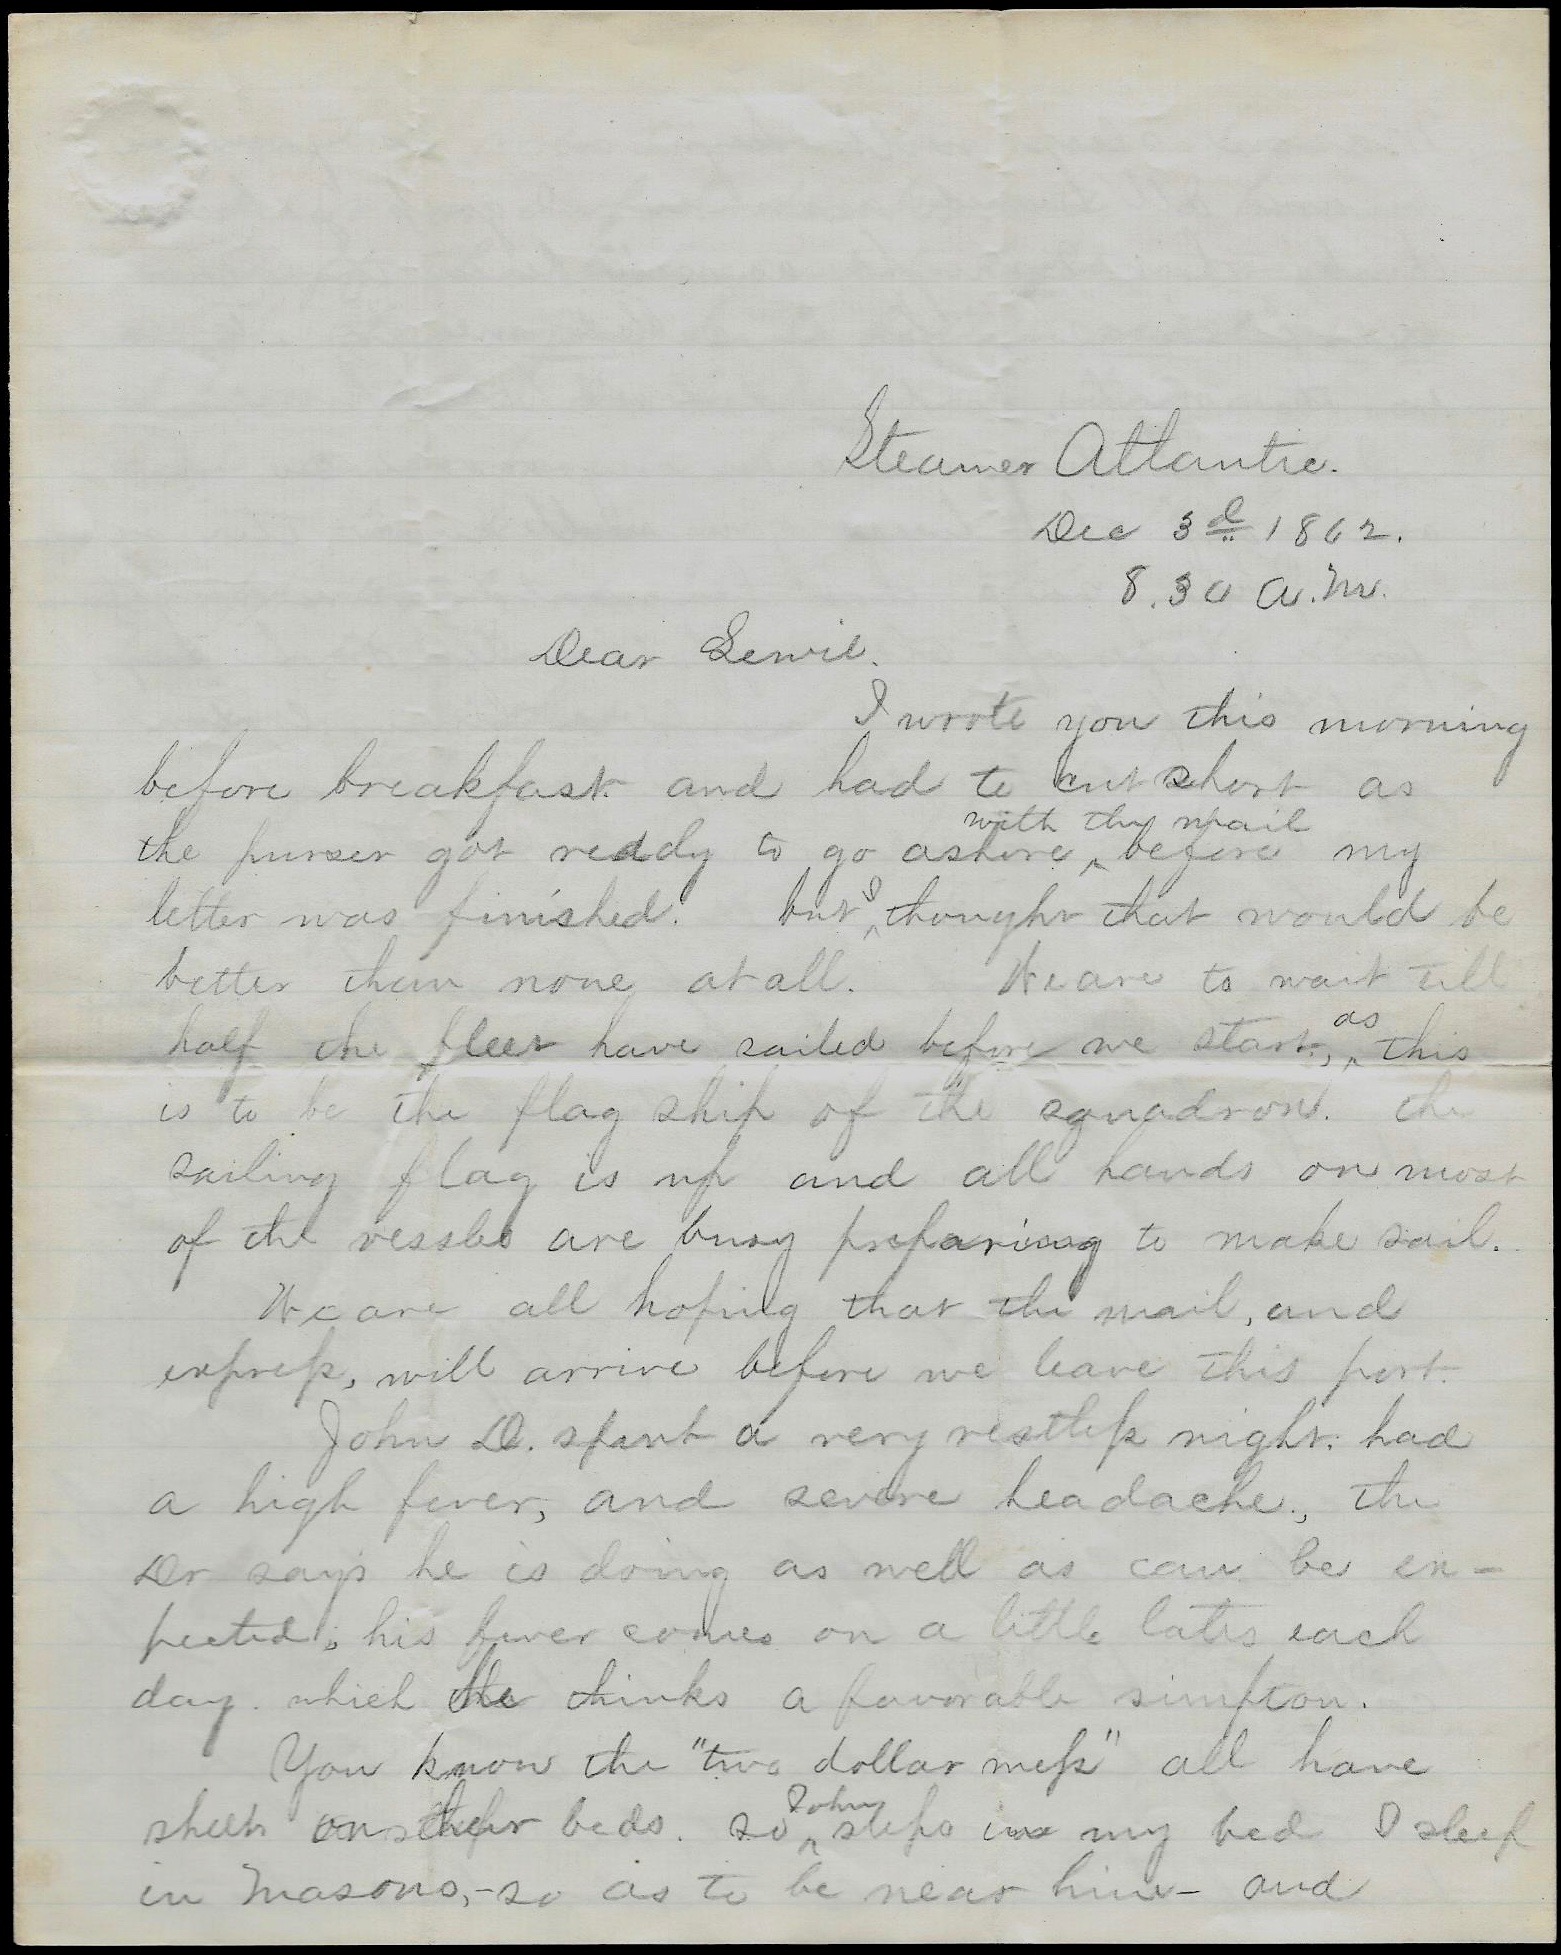 Steamer Atlantic.
Dec 3d 1862.
8.30 A.M.
Dear Lewie.
I wrote you this morning
before breakfast and had to cut short as
with the mail
the purser got ready to go ashore ^ before my
I
letter was finished. but ^ thought that would be
better than none at all. We are to wait till
as
half the fleet have sailed before we start, ^ this
is to be the flag ship of the squadron. The
sailing flag is up and all hands on most
of the vessles are busy preparing to make sail.
We are all hoping that the mail, and
express, will arrive before we leave this port.
John D. spent a very restless night. had
a high fever, and severe headache., the
Dr says he is doing as well as can be ex-
pected; his fever comes on a little later each
day. which he thinks a favorable simpton.
You know the "two dollar mess" all have
John
sheets on their beds. so ^ sleeps in my bed I sleep
in Masons, - so as to be near him - and